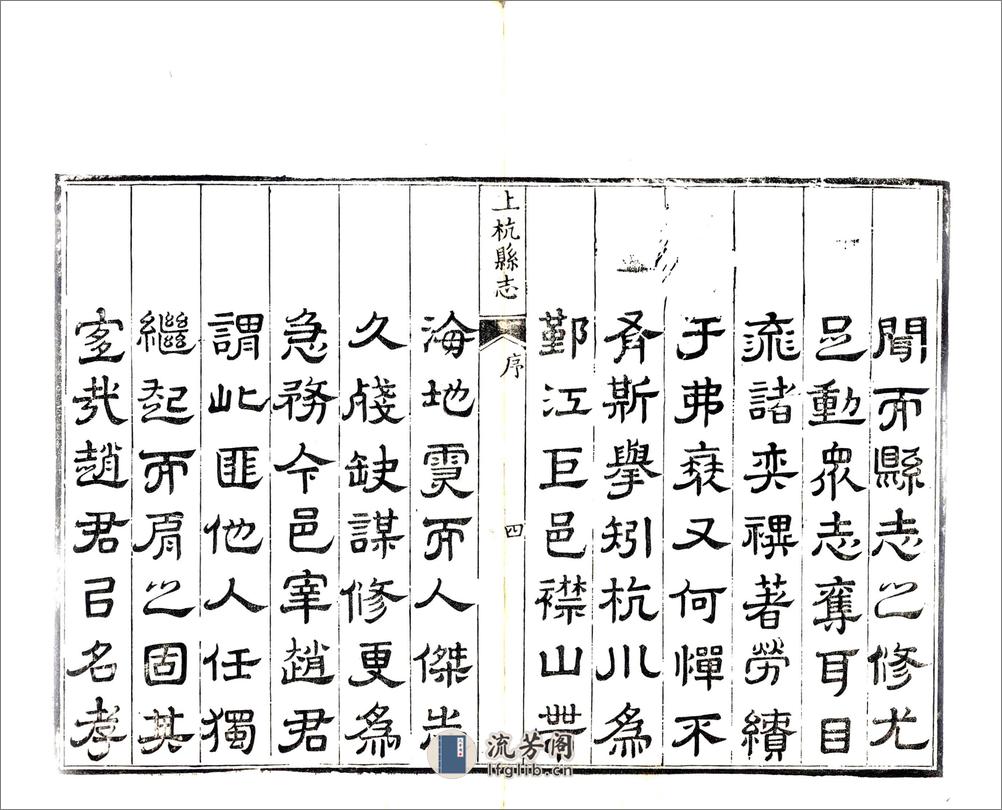 聞而縣志之修尤
足動眾志奪耳目
流諸奕禩著勞績
于弗衰又何憚不
斯擧矧杭川為
鄞江巨邑襟山帶
上杭縣志
序
四
海地靈而人傑
久殘缺謀修更為
急務今邑宰趙君
謂此匪他人任獨
繼起而肩之固其
宜哉趙君㠯名孝
流芳阁
lfglib.cn